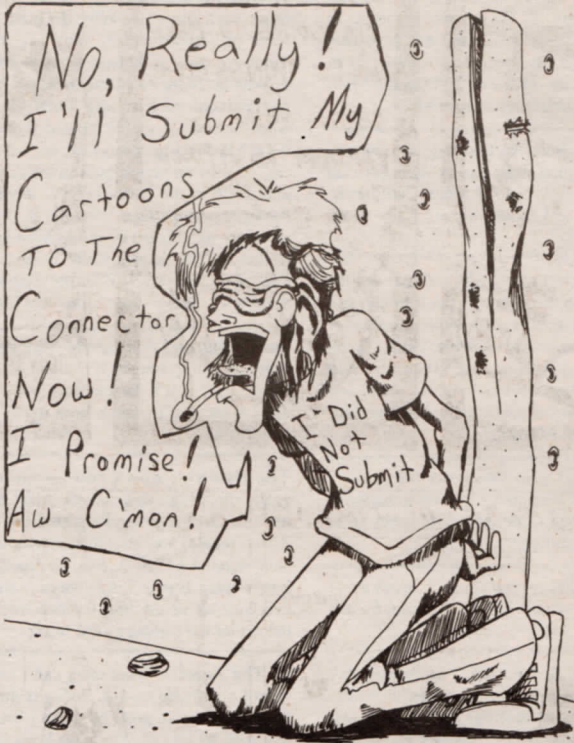 No, Really!
I'll Submit My
Cartoons
To The
Connector
Now!
I Promise!
Aw C'mon!
I Did
Not
Submit